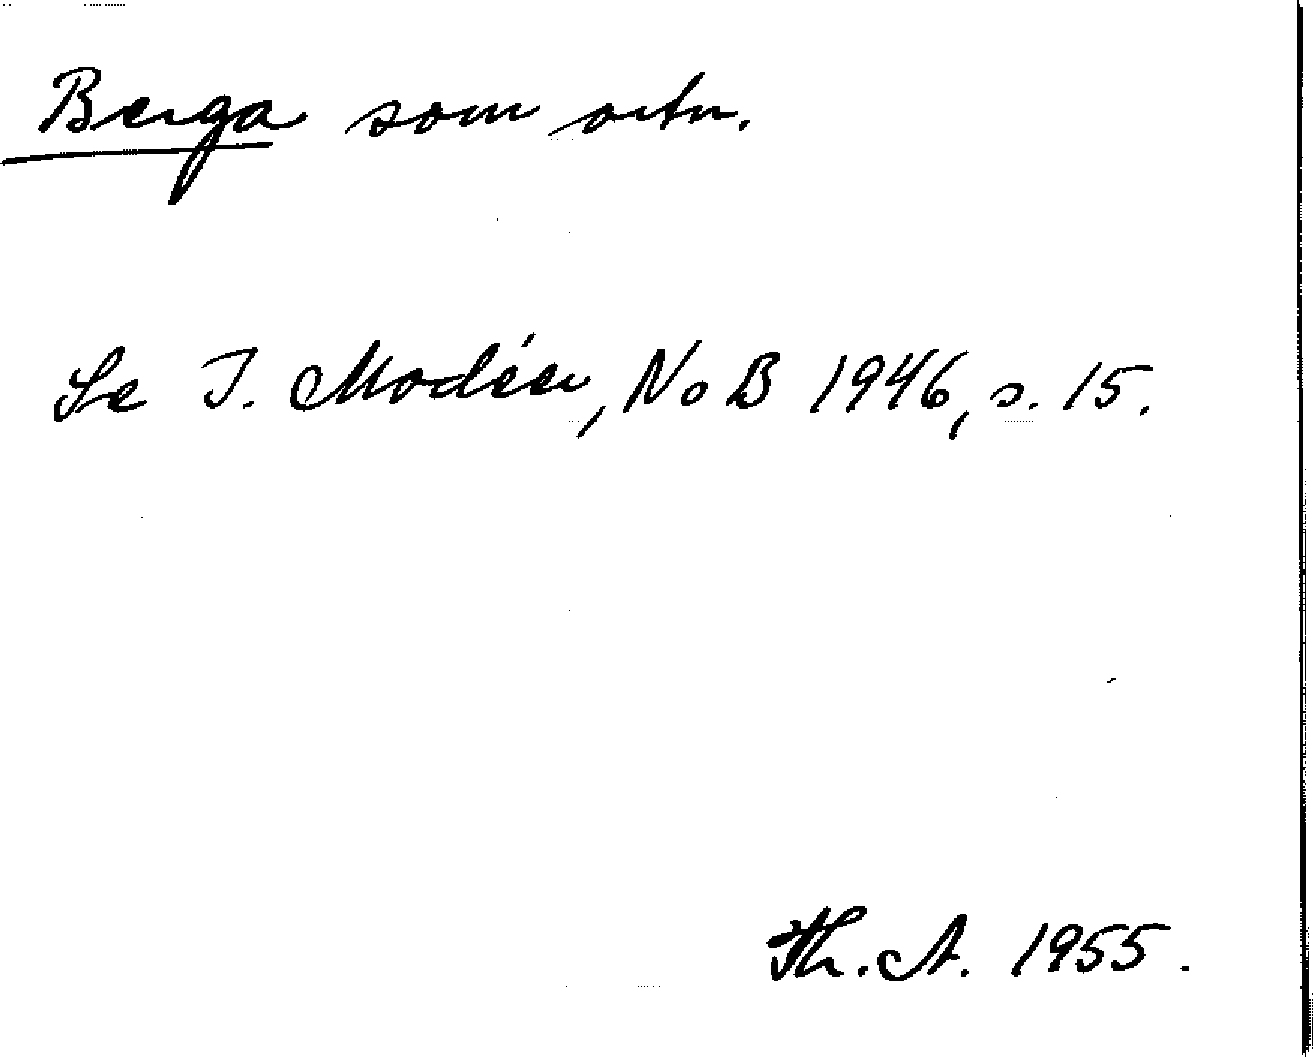 Berga som ortn.
Se I. Modéer, NoB 1946, s. 15.
Th. A. 1955.